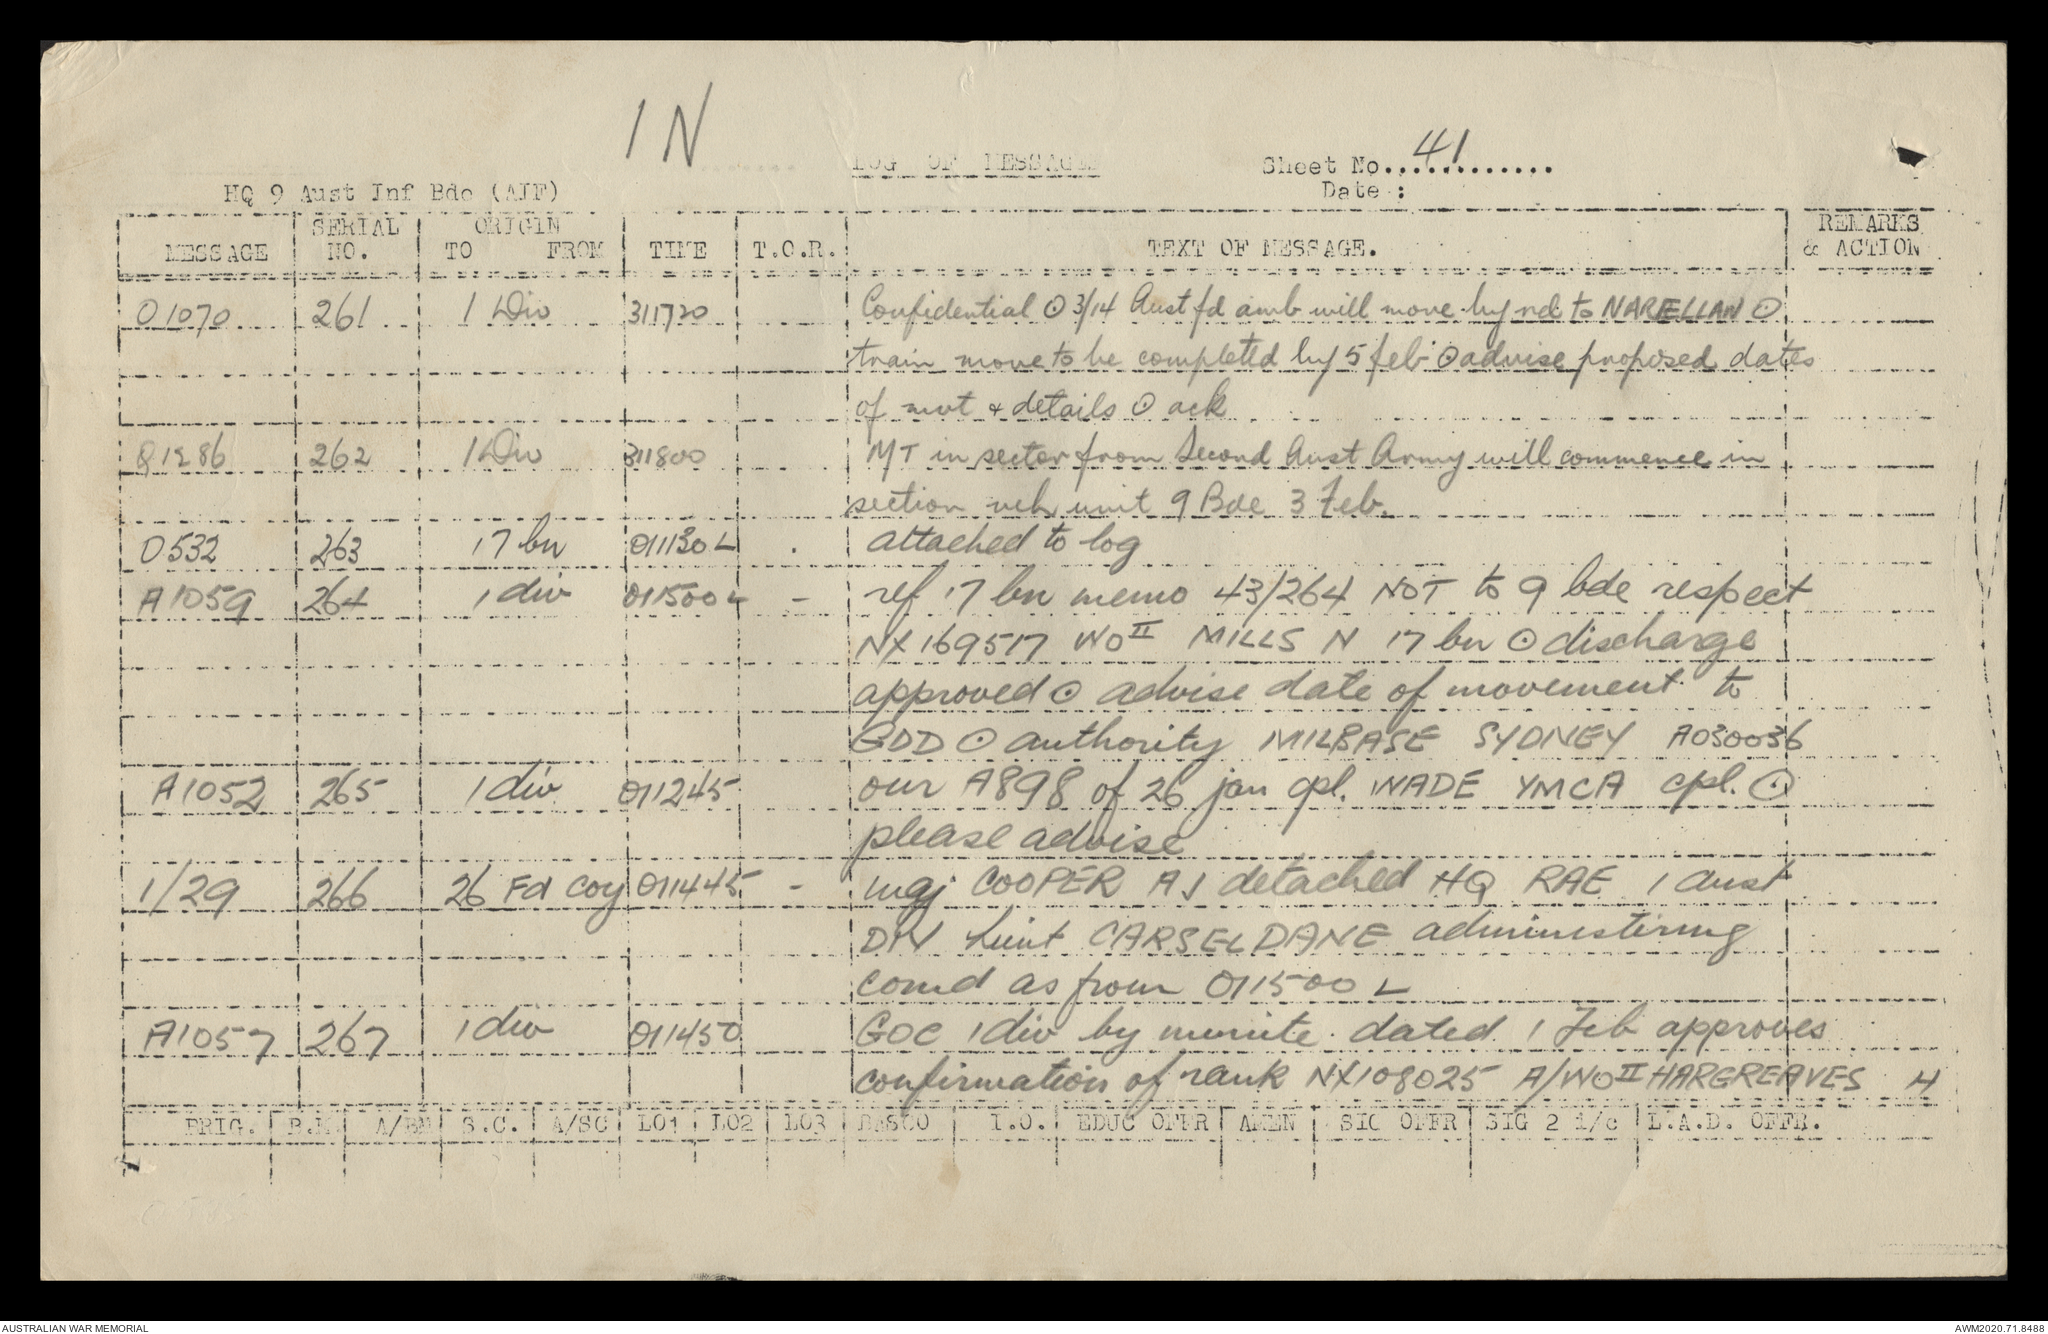 IN
LOG OF MESSAGES
Sheet No...41............
Date :
HQ 9 Aust Inf Bde (AIF)
MESSAGE SERIAL NO. ORIGIN TO FROM TIME T.O.R. TEXT OF MESSAGE. REMARKS & ACTION
O1070 261 1 Div 311720 Confidential ⊙ 3/14 Aust fd amb will move by rd to NARELLAN ⊙
train move to be completed by 5 feb ⊙ advise proposed dates
of mvt & details ⊙ ack
Q1286 262 1 Div 311800 MT in sector from Second Aust Army will commence in
section veh unit 9 Bde 3 Feb.
O532 263 17 bn 011130L . attached to log
A1059 264 1 div 011500L - ref 17 bn memo 43/264 NOT to 9 bde respect
NX169517 WO II MILLS N 17 bn ⊙ discharge
approved ⊙ advise date of movement to
GDD ⊙ authority MILBASE SYDNEY A030036
A1052 265 1 div 011245 our A898 of 26 jan cpl. WADE YMCA cpl. ⊙
please advise
1/29 266 26 Fd Coy 011445 - maj COOPER AJ detached HQ RAE 1 Aust
DIV Lieut CARSELDANE administering
comd as from 011500L
A1057 267 1 div 011450 GOC 1 div by minute dated 1 Feb approves
confirmation of rank NX108025 A/WO II HARGREAVES H
BRIG. B.M. A/BM S.C. A/SC LO1 LO2 LO3 BASCO I.O. EDUC OFFR AMEN SIG OFFR SIG 2 i/c L.A.D. OFFR.
AUSTRALIAN WAR MEMORIAL
AWM2020.71.8488